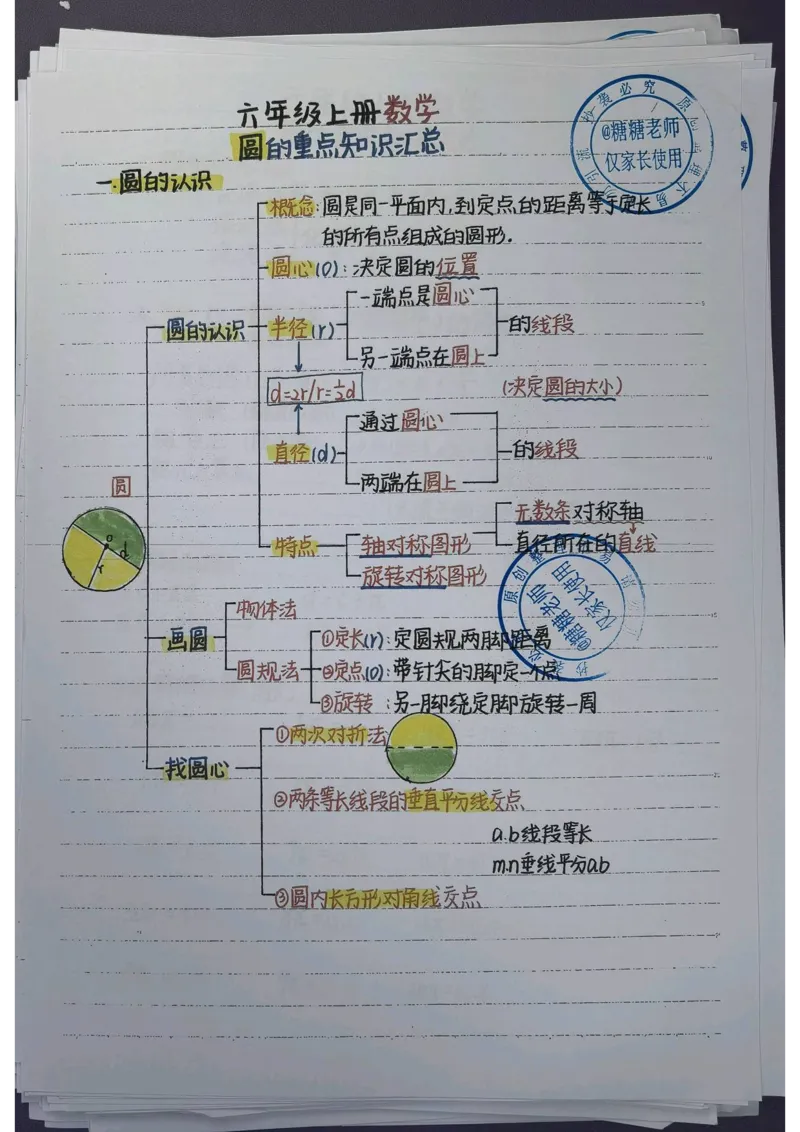 六年级上册数学
圆的重点知识汇总
一.圆的认识
概念:圆是同一平面内,到定点的距离等于定长
的所有点组成的圆形.
圆心(O):决定圆的位置
圆的认识
半径(r)
一端点是圆心
另一端点在圆上
的线段
d=2r/r=½d
(决定圆的大小)
直径(d)
通过圆心
两端在圆上
的线段
圆
O
d
r
特点
轴对称图形
无数条对称轴
直径所在的直线
旋转对称图形
画圆
物体法
圆规法
①定长(r):定圆规两脚距离
②定点(O):带针尖的脚定一个点
③旋转:另一脚绕定脚旋转一周
找圆心
①两次对折法
②两条等长线段的垂直平分线交点
a.b线段等长
m.n垂线平分a.b
③圆内长方形对角线交点
@糖糖老师
仅家长使用
@糖糖老师
仅家长使用